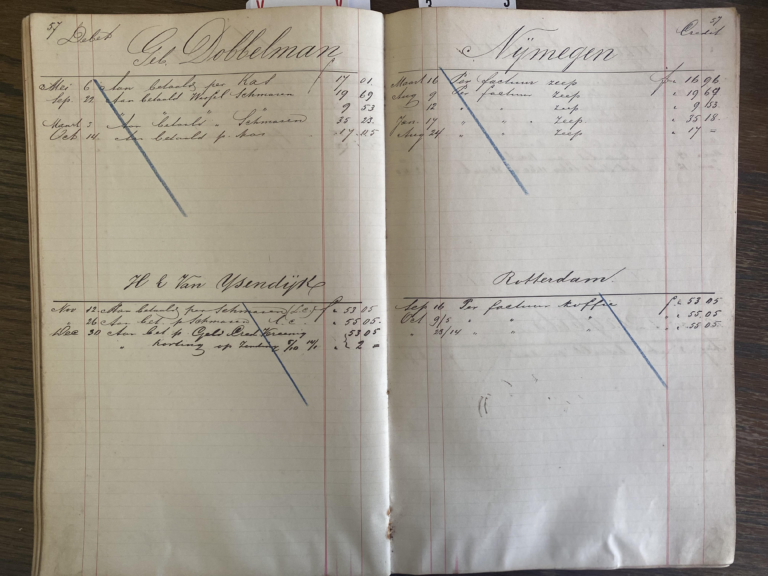 57 Debet
Geb. Dobbelman
Mei 6 Aan betaald per Kas f 17 01
Sep. 22 Aan betaald Wissel Schmaren " 19 69
" 9 53
Maart 3 Aan betaald " Schmaren " 35 23
Oct 14 Aan betaald p. kas " 17 115
H C Van Ysendijk
Nov 12 Aan betaald per Schmaren f " 53 05
" 26 Aan bet. p Schmaren " 55 05
Dec 30 Aan bet p " 53 05
" Korting op " 2 =
57
Credit
Nijmegen
Maart 16 Per factuur zeep f " 16 96
Aug 9 Per factuur zeep " 19 69
" 12 " " zeep " 9 53
Jan 17 " " zeep " 35 18
Aug 24 " " zeep " 17 =
Rotterdam
Sep 16 Per factuur koffie f " 53 05
Oct 9/5 " " " " 55 05
" 28/14 " " " " 55 05